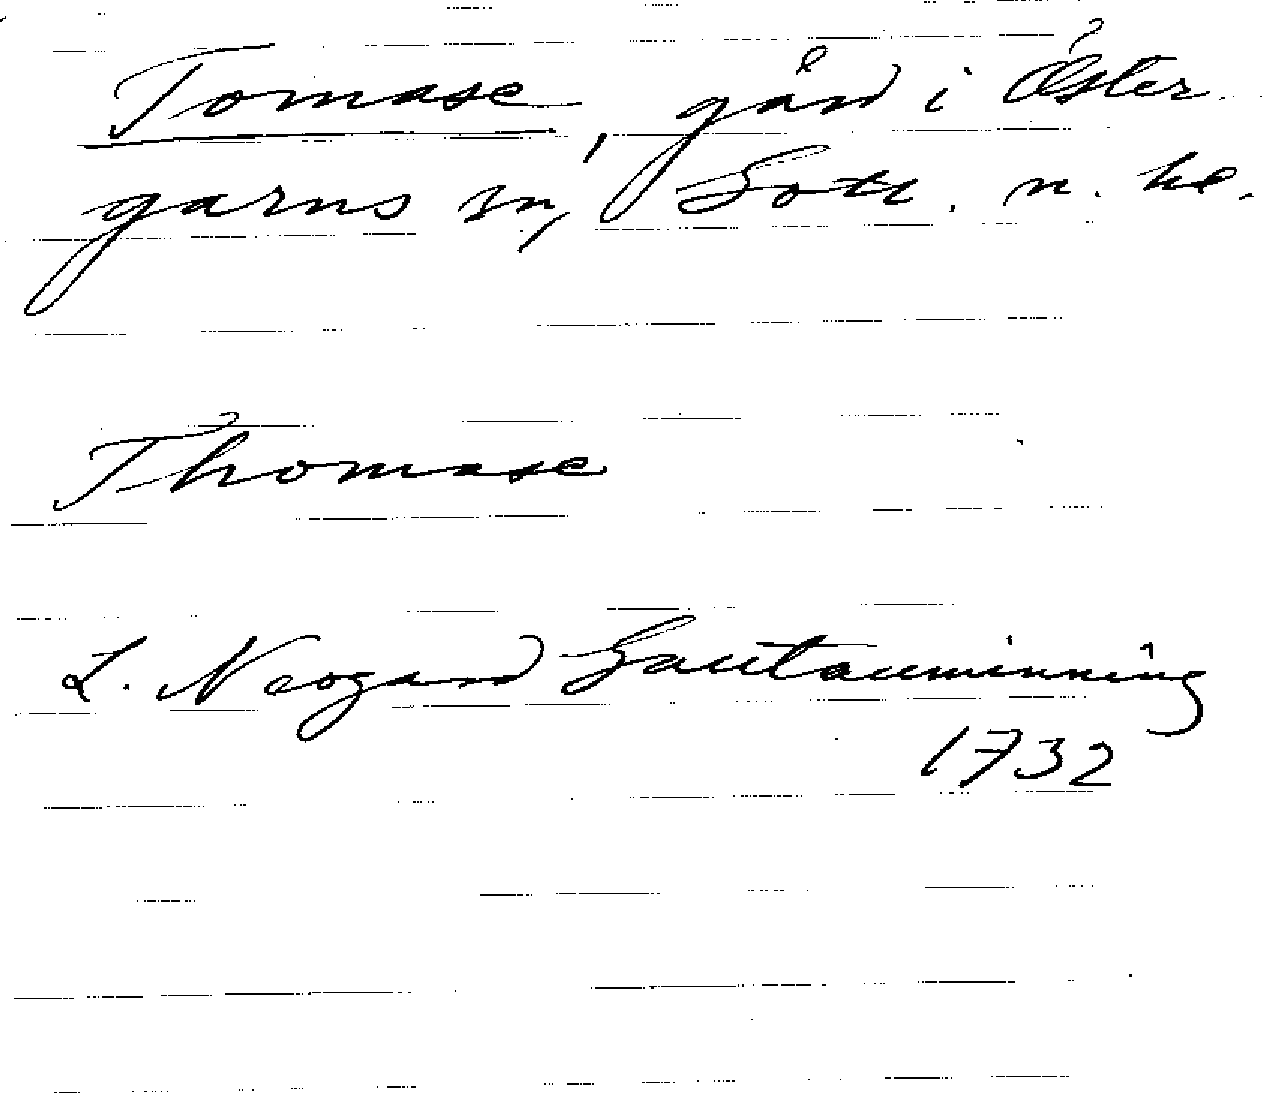 Tomase, gård i Öster-
garns sn, Gotl. n. hd.
Thomase
L. Neogard Gautauminning
1732